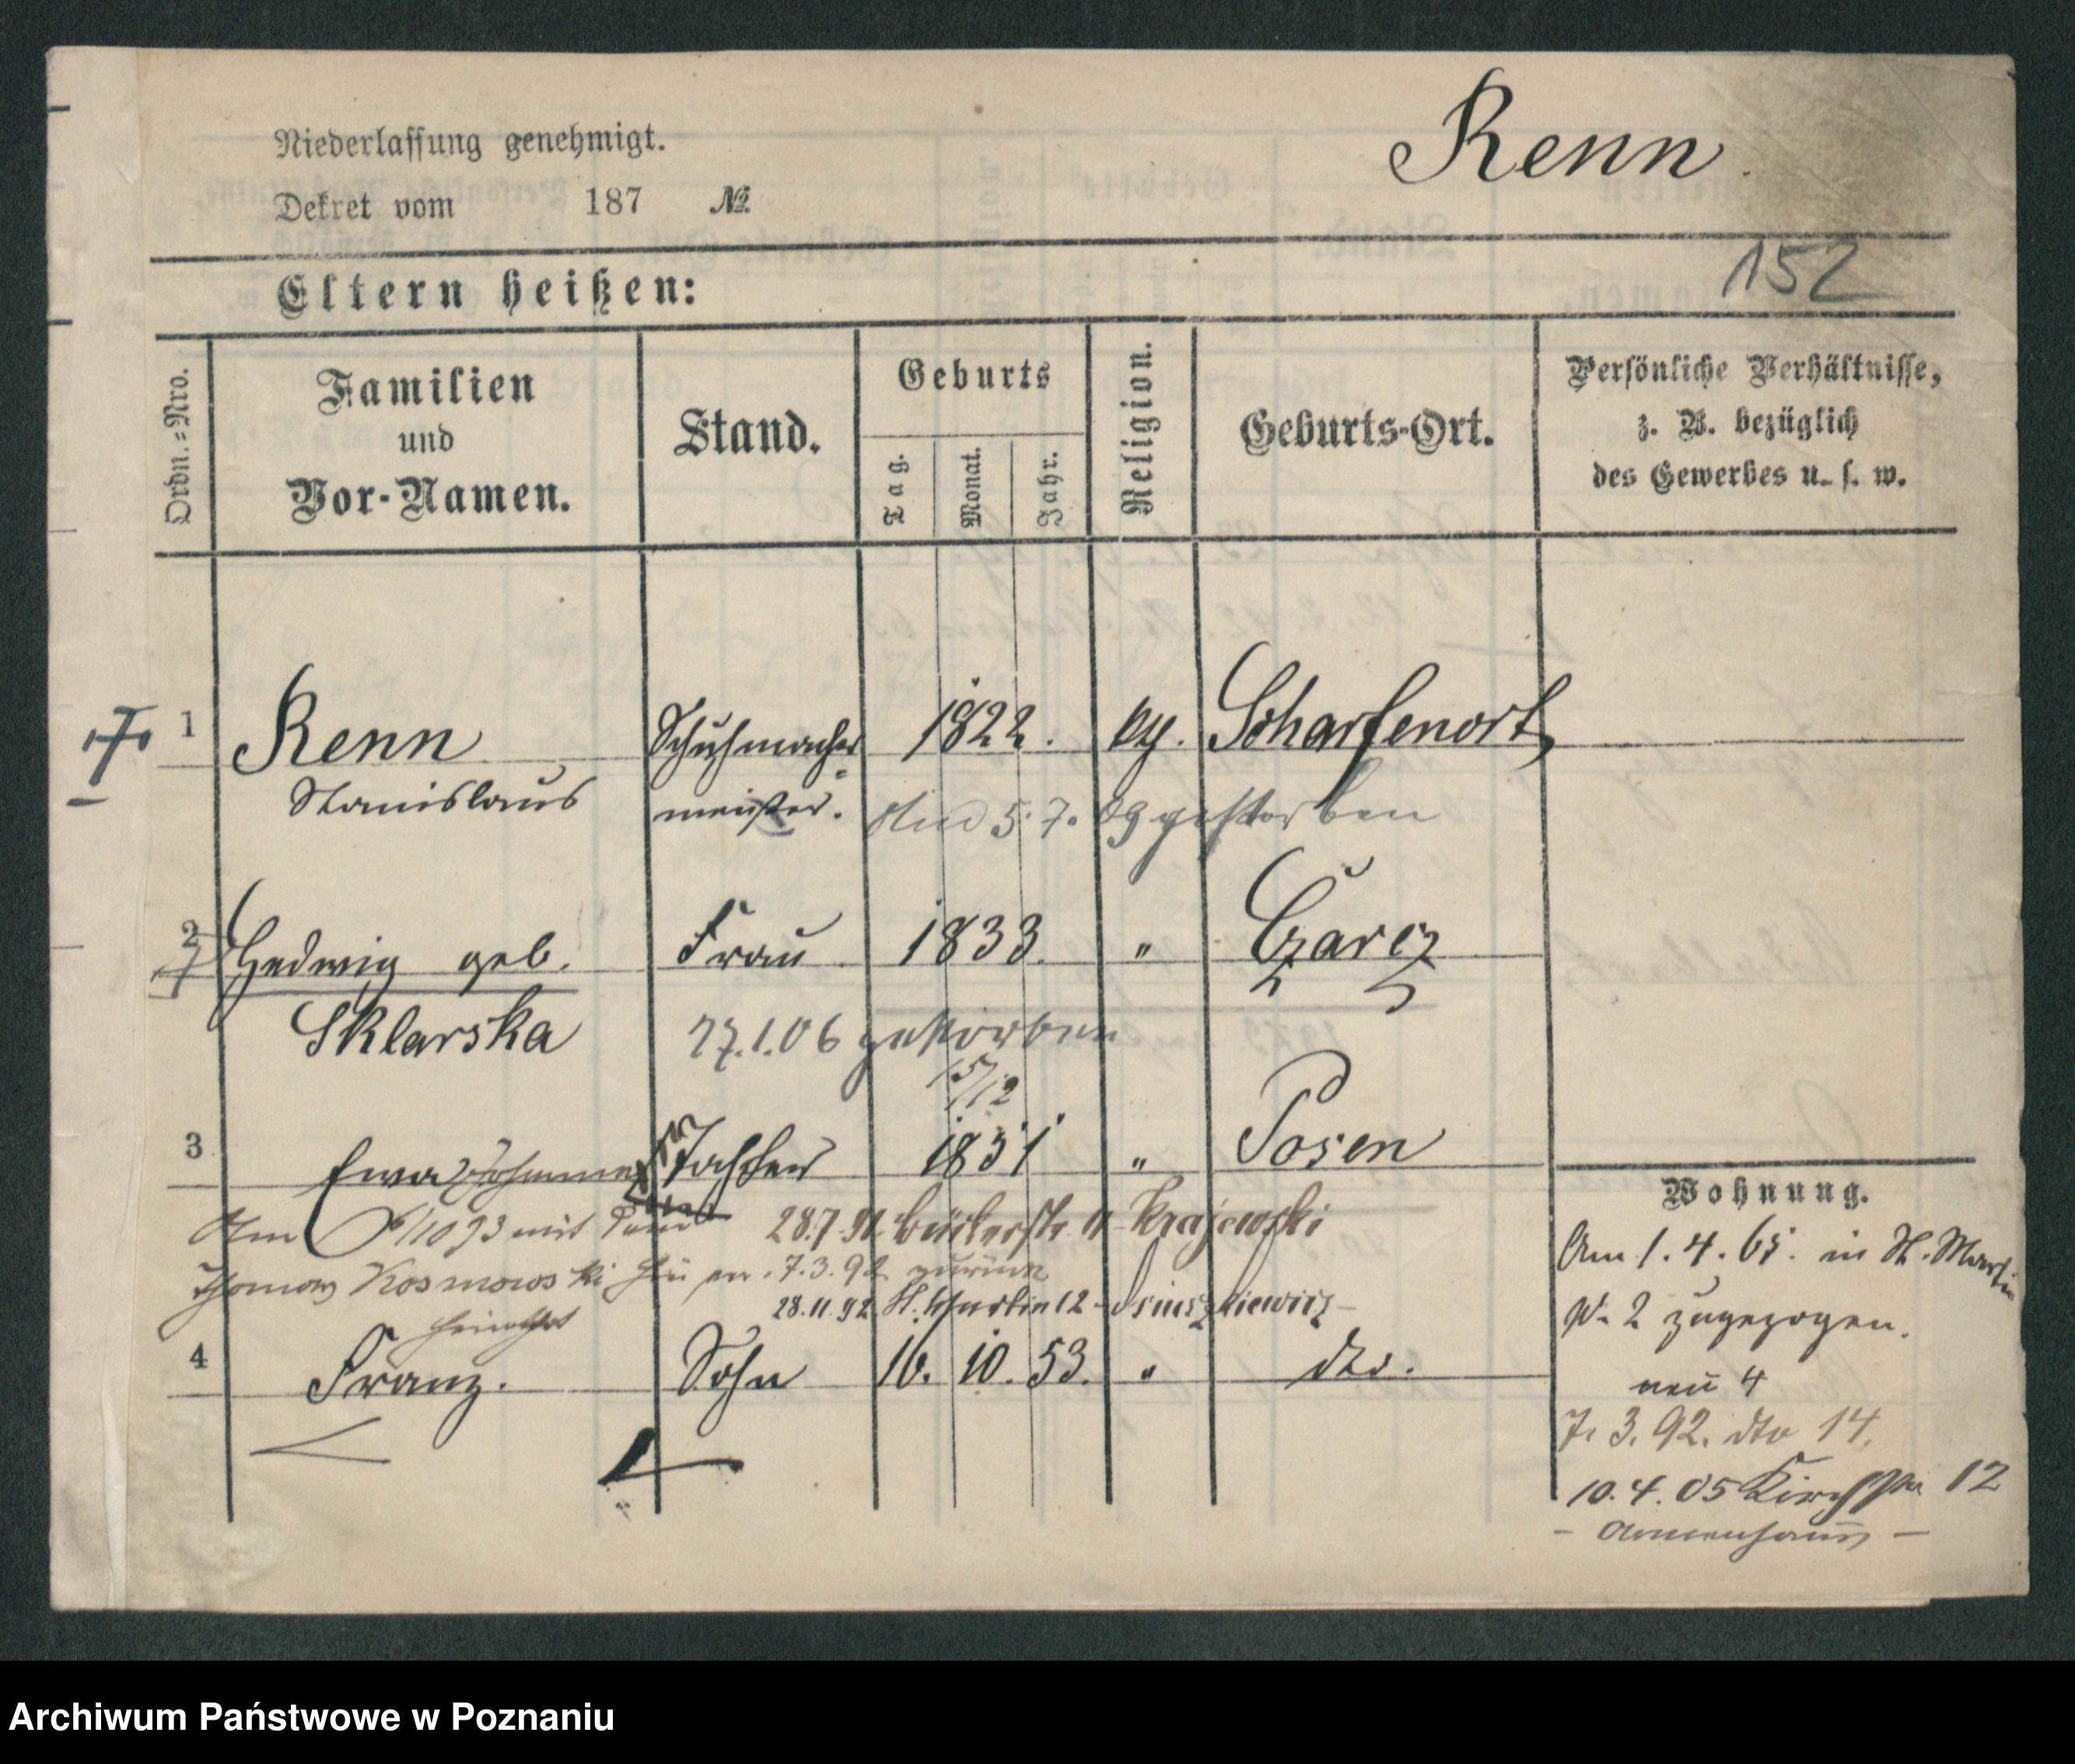 Renn.
Niederlassung genehmigt.
Dekret vom 187 №
152
Eltern heißen:
Ordn.=Nro.
Familien
und
Vor-Namen.
Stand.
Geburts
Tag.
Monat.
Jahr.
Religion.
Geburts-Ort.
Persönliche Verhältnisse,
z. B. bezüglich
des Gewerbes u. s. w.
1 Renn Schuhmacher 1822. Scharfenort
Stanislaus meister. 5. 7. 09 gestorben
2 Hedwig geb. Frau 1833. " Czarcz
Sklarska 27.1.06 gestorben
15/12
3 Ewa Johanna Tochter 1851 " Posen
Am 6/10 93 mit dem 28.7.91 11 Krajewski
Thomas Kosmowski 7.3.92 zurück
28.11.92. St. Martin 12
4 Franz. Sohn 16. 10. 53. " dto.
Wohnung.
Am 1. 4. 65. in St. Martin
No 2 zugezogen.
neu 4
7. 3. 92. dto 14.
10. 4. 05 Kirchstr 12
- Armenhaus -
Archiwum Państwowe w Poznaniu